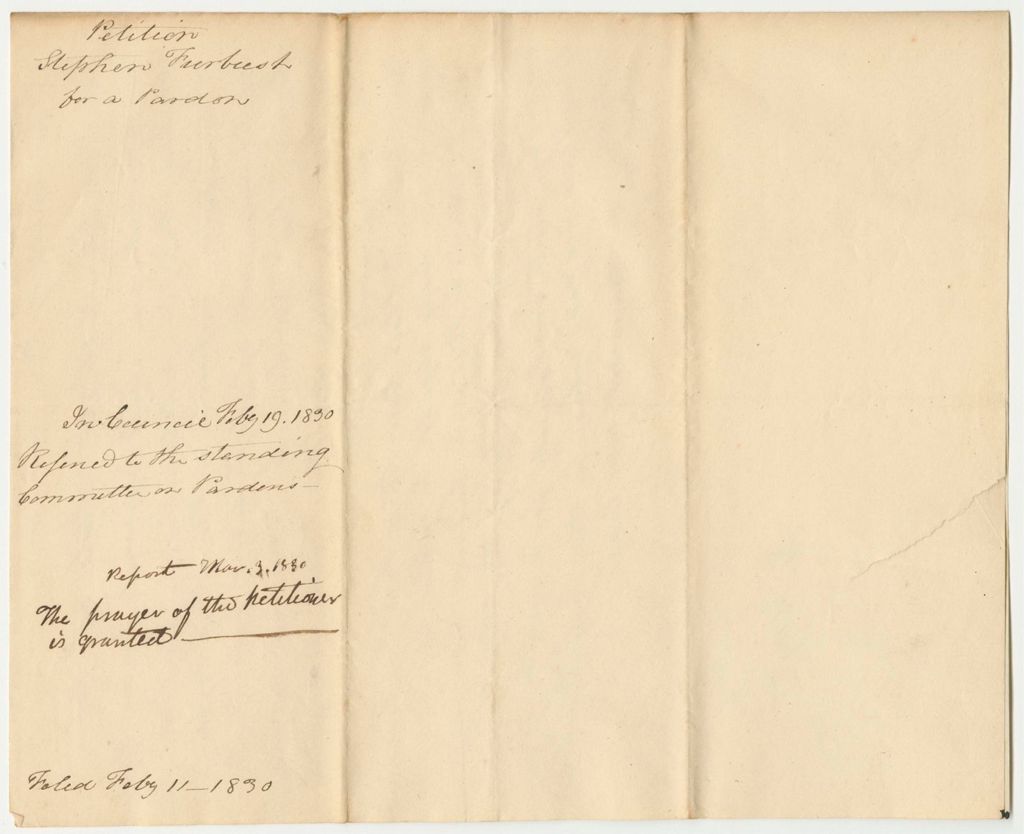 Petition
Stephen Furbush
for a Pardon
In Council Feby 19. 1830
Referred to the standing
Committee on Pardons—
Report Mar. 3, 1830
The prayer of the Petitioner
is granted —
Filed Feby 11—1830